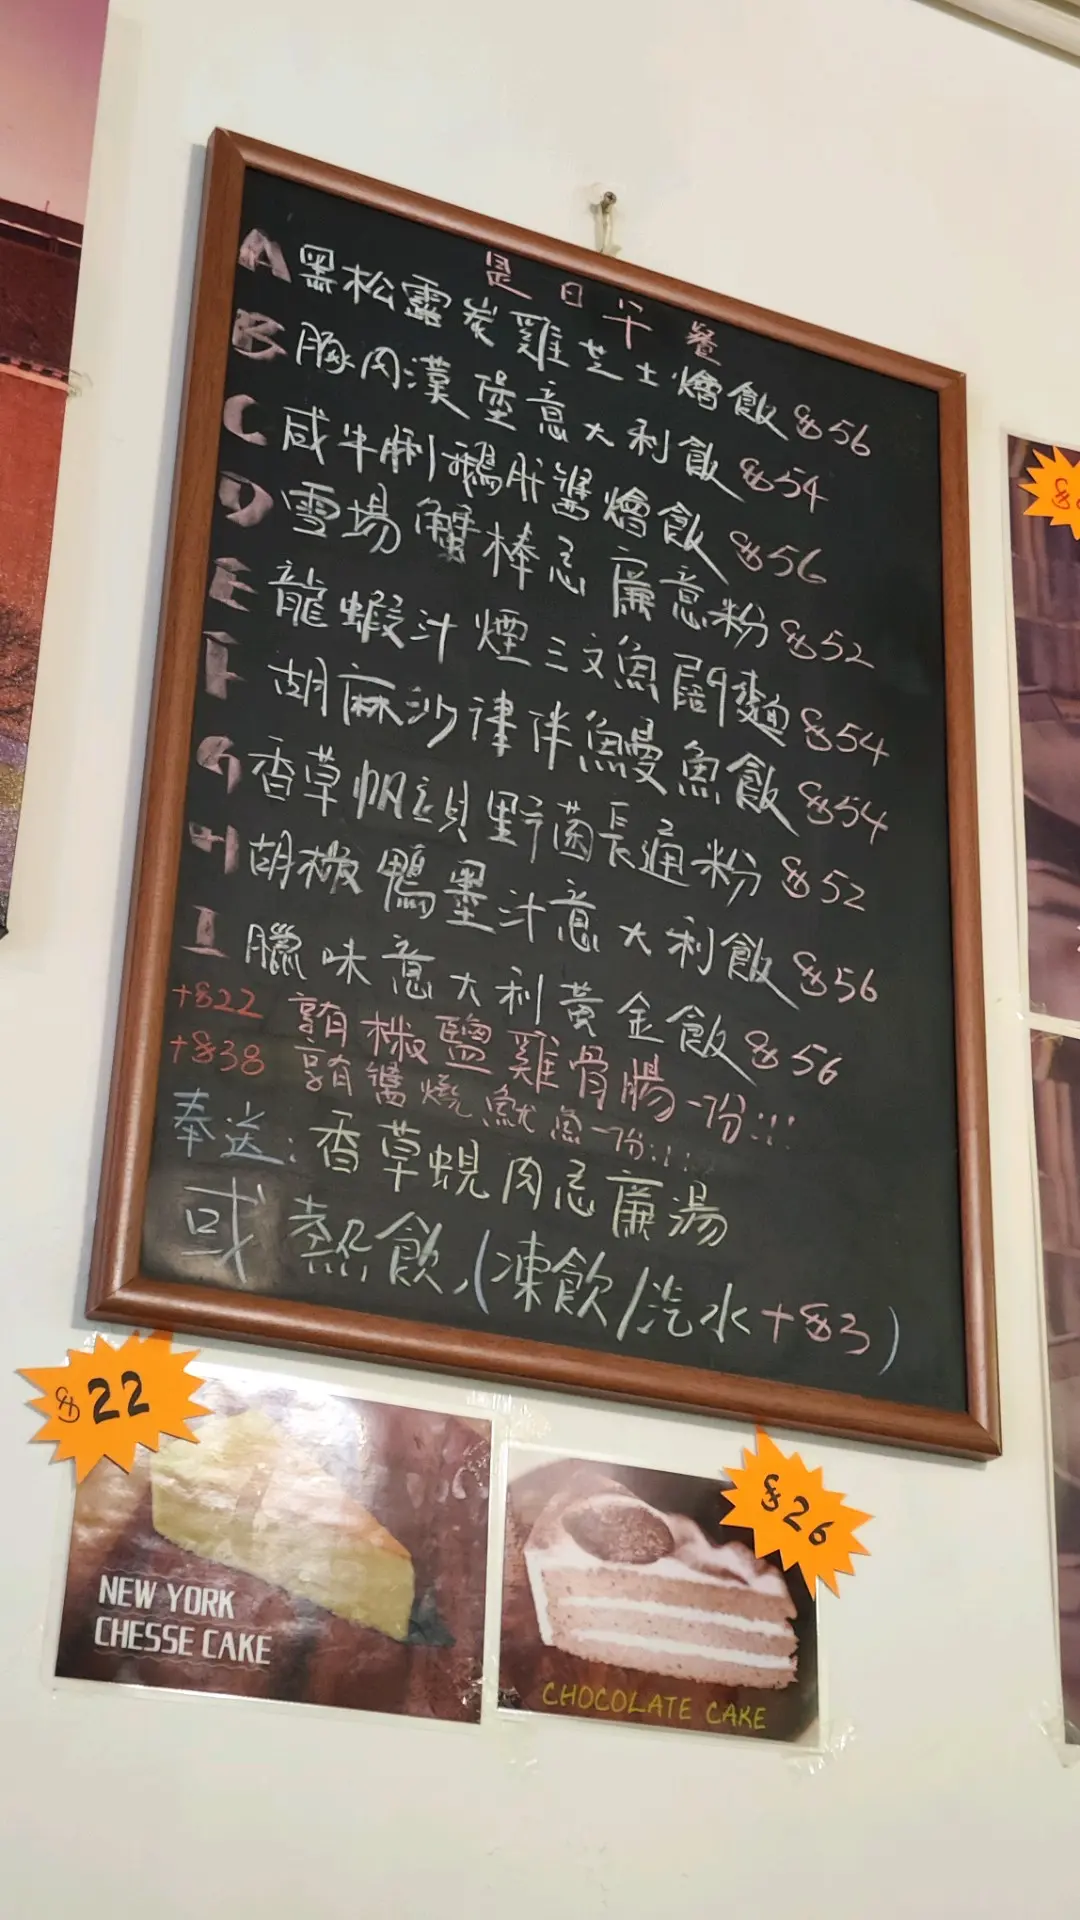 是日午餐
A 黑松露炭雞芝士燴飯 $56
B 豚肉漢堡意大利飯 $54
C 咸牛脷鵝肝醬燴飯 $56
D 雪場蟹棒忌廉意粉 $52
E 龍蝦汁煙三文魚闊麵 $54
F 胡麻沙律伴鰻魚飯 $54
G 香草帆立貝野菌長通粉 $52
H 胡椒鴨墨汁意大利飯 $56
I 臘味意大利黃金飯 $56
+$22 享有椒鹽雞骨腸一份!!!
+$38 享有醬燒魷魚一份!!!
奉送:香草蜆肉忌廉湯
或熱飲,(凍飲/汽水+$3)
$22
NEW YORK
CHESSE CAKE
$26
CHOCOLATE CAKE